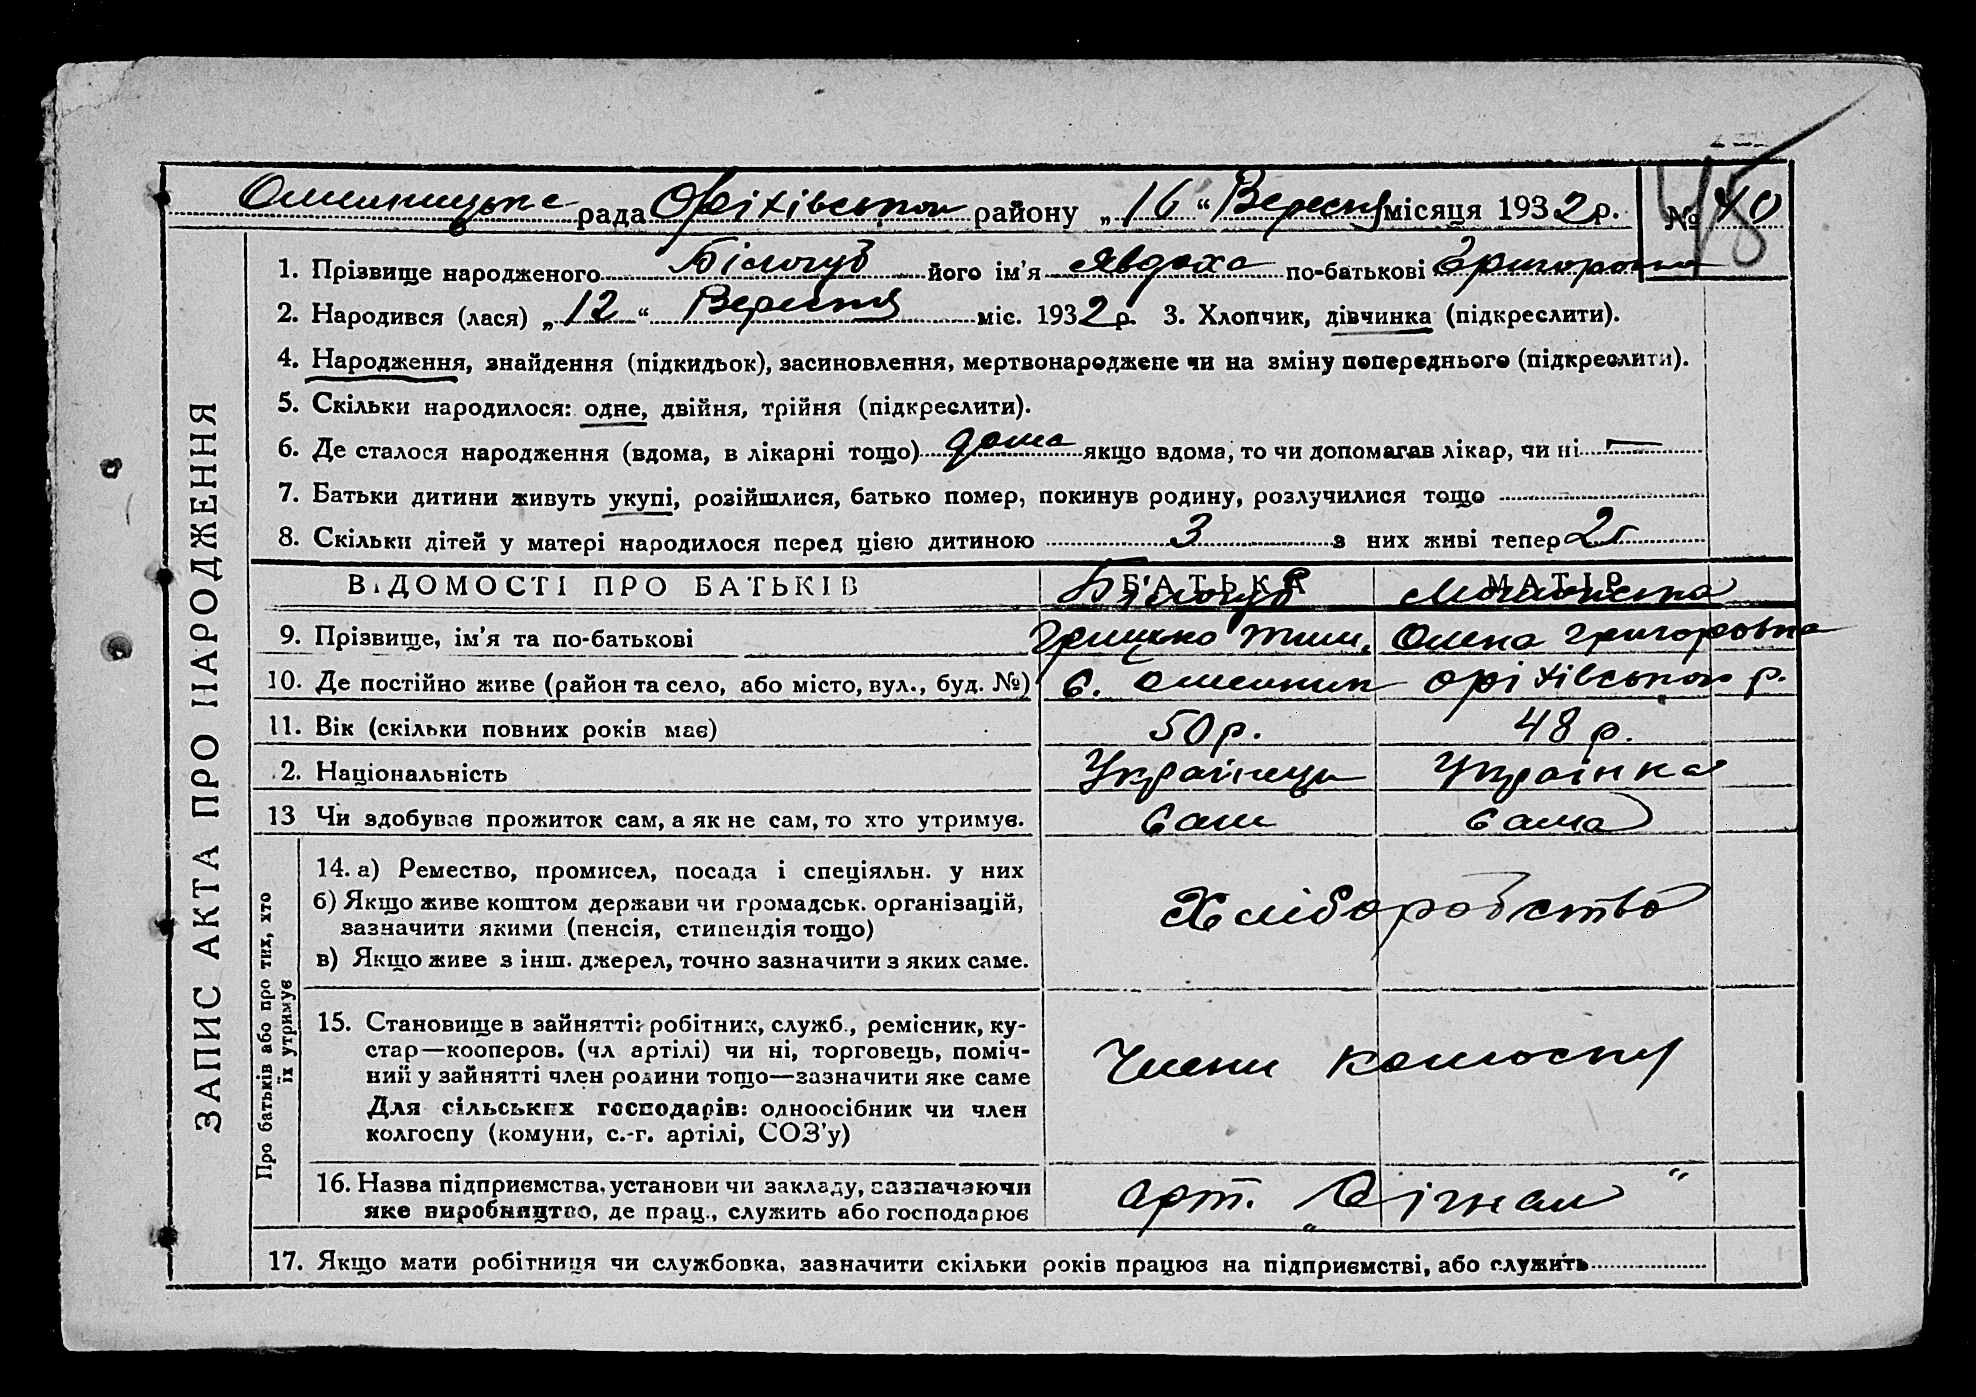 Омельницька рада Оріхівськом району „16“ Вересня місяця 1932 р. № 40
45
ЗАПИС АКТА ПРО НАРОДЖЕННЯ
1. Прізвище народженого Білогуб його ім'я Явдоха по-батькові Григоровна
2. Народився (лася) „12“ Вересня міс. 1932 р. 3. Хлопчик, дівчинка (підкреслити).
4. Народження, знайдення (підкидьок), засиновлення, мертвонароджене чи на зміну попереднього (підкреслити).
5. Скільки народилося: одне, двійня, трійня (підкреслити).
6. Де сталося народження (вдома, в лікарні тощо) дома якщо вдома, то чи допомагав лікар, чи ні —
7. Батьки дитини живуть укупі, розійшлися, батько помер, покинув родину, розлучилися тощо
8. Скільки дітей у матері народилося перед цією дитиною 3 з них живі тепер 2
ВІДОМОСТІ ПРО БАТЬКІВ БАТЬКА МАТІР
Білогуб
9. Прізвище, ім'я та по-батькові Грицько Тим. Олена Григоровна
10. Де постійно живе (район та село, або місто, вул., буд. №) с. Омельник Оріхівськом р.
11. Вік (скільки повних років має) 50 р. 48 р.
12. Національність Українець Українка
13 Чи здобуває прожиток сам, а як не сам, то хто утримує. Сам Сама
Про батьків або про тих, хто
їх утримує
14. а) Ремество, промисел, посада і спеціяльн. у них
б) Якщо живе коштом держави чи громадськ. організацій,
зазначити якими (пенсія, стипендія тощо)
Хліборобство
в) Якщо живе з інш. джерел, точно зазначити з яких саме.
15. Становище в зайнятті: робітник, служб., ремісник, ку-
стар—кооперов. (чл артілі) чи ні, торговець, поміч-
ний у зайнятті член родини тощо—зазначити яке саме
Члени колгоспу
Для сільських господарів: одноосібник чи член
колгоспу (комуни, с.-г. артілі, СОЗ'у)
16. Назва підприємства, установи чи закладу, зазначаючи
яке виробництво, де прац., служить або господарює
арт. „Сігнал“
17. Якщо мати робітниця чи службовка, зазначити скільки років працює на підприємстві, або служить